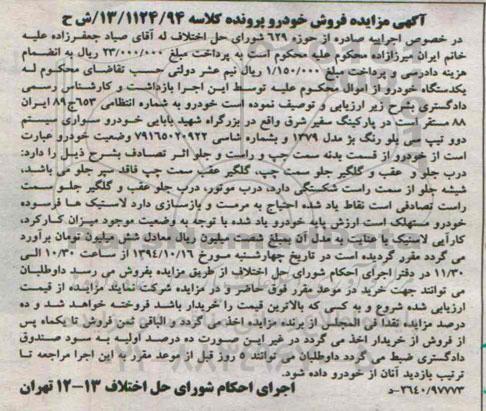 آگهی مزایده فروش خودرو پرونده کلاسه ۱۳/۱۱۲۴/۹۴/ش ح
در خصوص اجراییه صادره از حوزه ۶۲۹ شورای حل اختلاف له آقای صیاد جعفرزاده علیه
خانم ایران میرزازاده محکوم علیه محکوم است به پرداخت مبلغ ۲۳/۰۰۰/۰۰۰ ریال به انضمام
هزینه دادرسی و پرداخت مبلغ ۱/۱۵۰/۰۰۰ ریال نیم عشر دولتی حسب تقاضای محکوم له
یکدستگاه خودرو از اموال محکوم علیه توسط این اجرا بازداشت و کارشناس رسمی
دادگستری بشرح زیر ارزیابی و توصیف نموده است خودرو به شماره انتظامی ۱۵۳ج۸۹ ایران
۸۸ مستقر است در پارکینگ سفیر شرق واقع در بزرگراه شهید بابایی خودرو سواری سیستم
دوو تیپ سی یلو رنگ بژ مدل ۱۳۷۹ و بشماره شاسی ۷۹۱۶۵۰۲۰۹۲۲ وضعیت خودرو عبارت
است از خودرو از قسمت بدنه سمت چپ و راست و جلو اثر تصادف بشرح ذیل را دارد:
درب جلو و عقب و گلگیر جلو سمت چپ، گلگیر عقب سمت چپ فاقد سپر جلو می باشد،
شیشه جلو از سمت راست شکستگی دارد، درب موتور، درب جلو عقب و گلگیر جلو سمت
راست تصادفی است نقاط یاد شده احتیاج به مرمت و بازسازی دارد لاستیک ها فرسوده
خودرو مستهلک است ارزش پایه خودرو یاد شده با توجه به وضعیت موجود میزان کارکرد،
کارآیی لاستیک با عنایت به مدل آن بمبلغ شصت میلیون ریال معادل شش میلیون تومان برآورد
می گردد مقرر گردیده است در تاریخ چهارشنبه مورخ ۱۳۹۴/۱۰/۱۶ از ساعت ۱۰/۳۰ الی
۱۱/۳۰ در دفتر اجرای احکام شورای حل اختلاف از طریق مزایده بفروش می رسد داوطلبان
می توانند جهت خرید در موعد مقرر فوق حاضر و در مزایده شرکت نمایند مزایده از قیمت
ارزیابی شده شروع و به کسی که بالاترین قیمت را خریدار باشد فروخته خواهد شد و ده
درصد مزایده نقدا فی المجلس از برنده مزایده اخذ می گردد و الباقی ثمن فروش تا یکماه پس
از فروش از خریدار اخذ می گردد در غیر این صورت ده درصد اولیه به سود صندوق
دادگستری ضبط می گردد داوطلبان می توانند ۵ روز قبل از موعد مقرر به این اجرا مراجعه تا
ترتیب بازدید آنان از خودرو داده شود.
۳۶۴۰/۹۷۷۷۳-د اجرای احکام شورای حل اختلاف ۱۳-۱۲ تهران